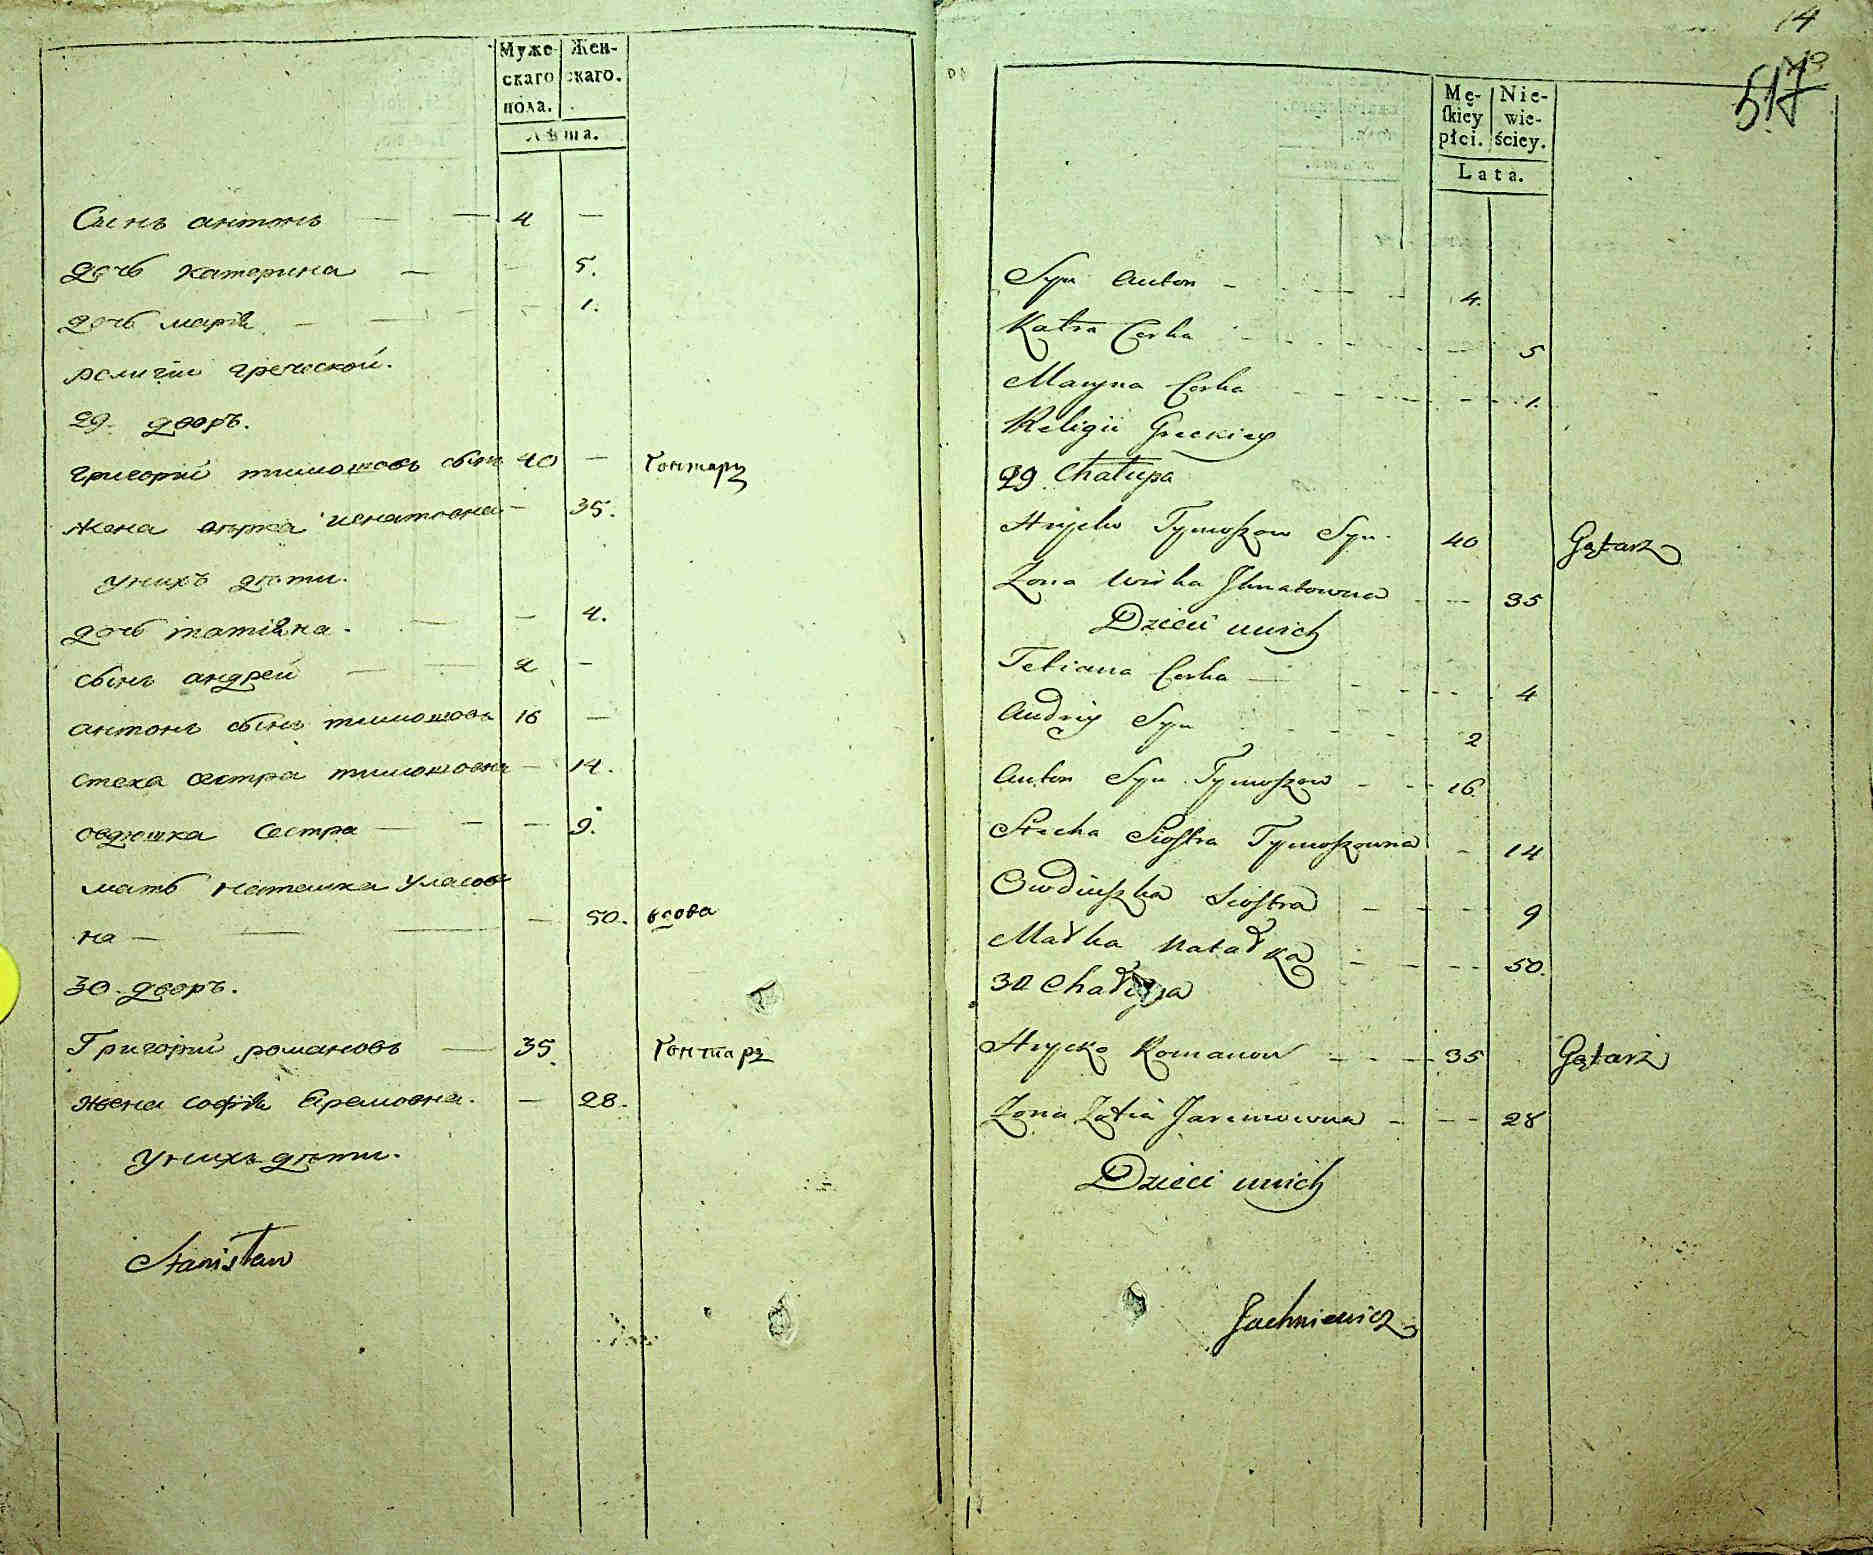 Муже-
скаго
пола.
Жен-
скаго.
Лѣта.
Сынъ антонъ — — 4 —
дочь катерина — - 5.
дочь марія — — - 1.
религіи греческой.
29. дворъ.
григорій тимошовъ сынъ 40 — Гонтаръ
жена вѣрка игнатовна — 35.
у нихъ дѣти.
дочь татіяна. — — 4.
сынъ андрей — — 2 —
антонъ сынъ тимошовъ 16 —
стеха сестра тимошовна — 14.
овдюшка сестра — — — 9.
мать наташка Уласов
на — — — — 50. вдова
30. дворъ.
Григорій романовъ — 35. Гонтаръ
жена софія Еремовна. — 28.
у нихъ дѣти.
Stanisław
14
517
Mę-
skiey
płci.
Nie-
wie-
ściey.
Lata.
Syn Anton - - - - 4.
Katra Corka - - - - 5
Maryna Corka - - - - 1.
Religii Greckiey
29 Chałupa
Hryćko Tymoszow Syn. 40 Gątarz
Zona Wirka Ihnatowna - - - 35
Dzieci unich
Tetiana Corka — - - - 4
Andriy Syn - - - - 2
Anton Syn Tymoszow - - 16
Stecha Siostra Tymoszowna - 14
Owdiuszka Siostra - - - - 9
Matka Natałka - - - - 50.
30 Chałupa
Hrycko Romanow - - - 35 Gątarz
Zona Zofia Jaremowna - - - 28
Dzieci unich
Jachniewicz